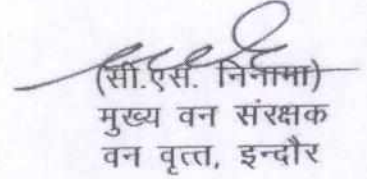 (सी.एस. निनामा)
मुख्य वन संरक्षक
वन वृत्त, इन्दौर